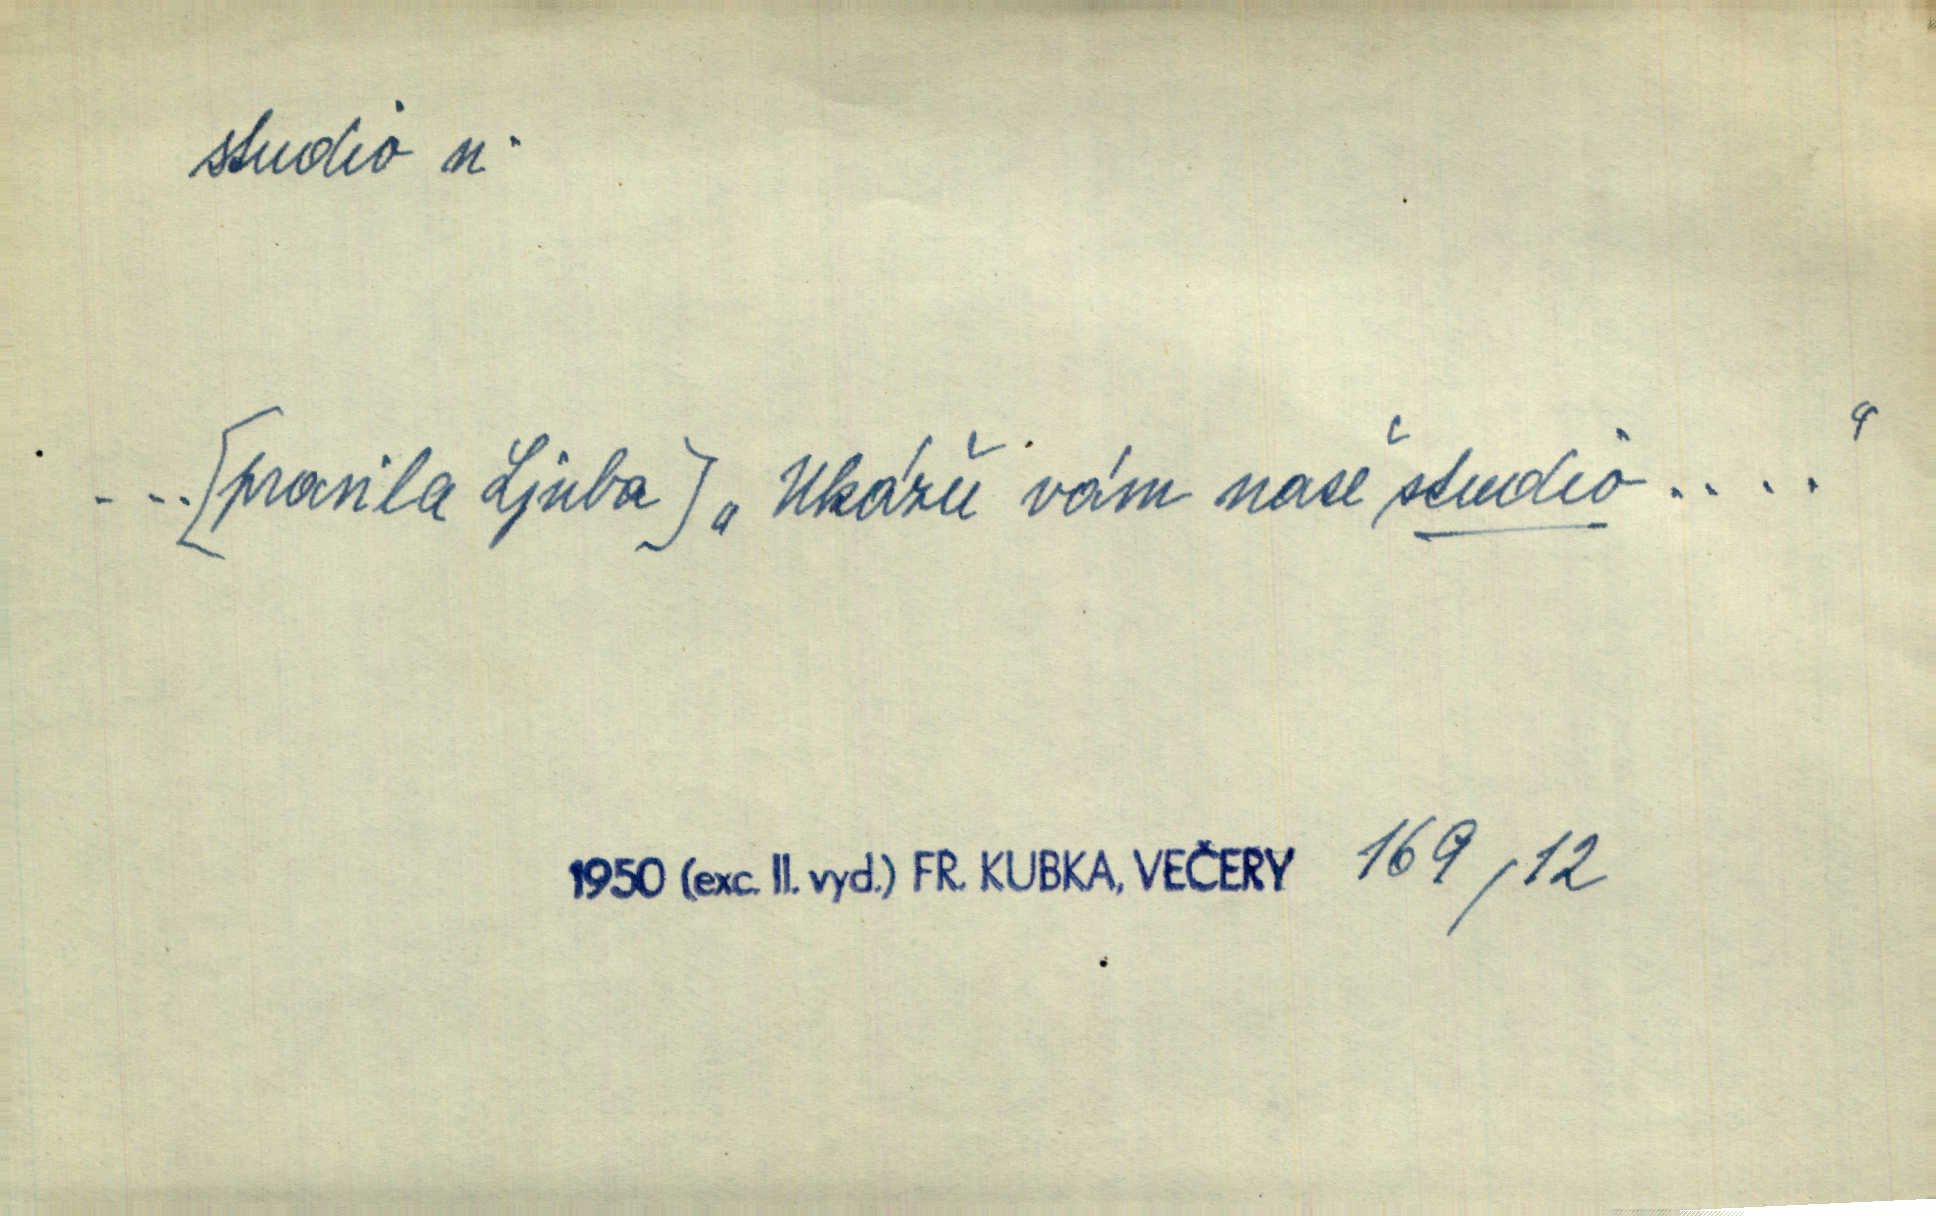 studio n.
...[pravila Ljuba] „Ukáži vám naše studio...."
1950 (exc. II. vyd.) FR. KUBKA, VEČERY 169,12